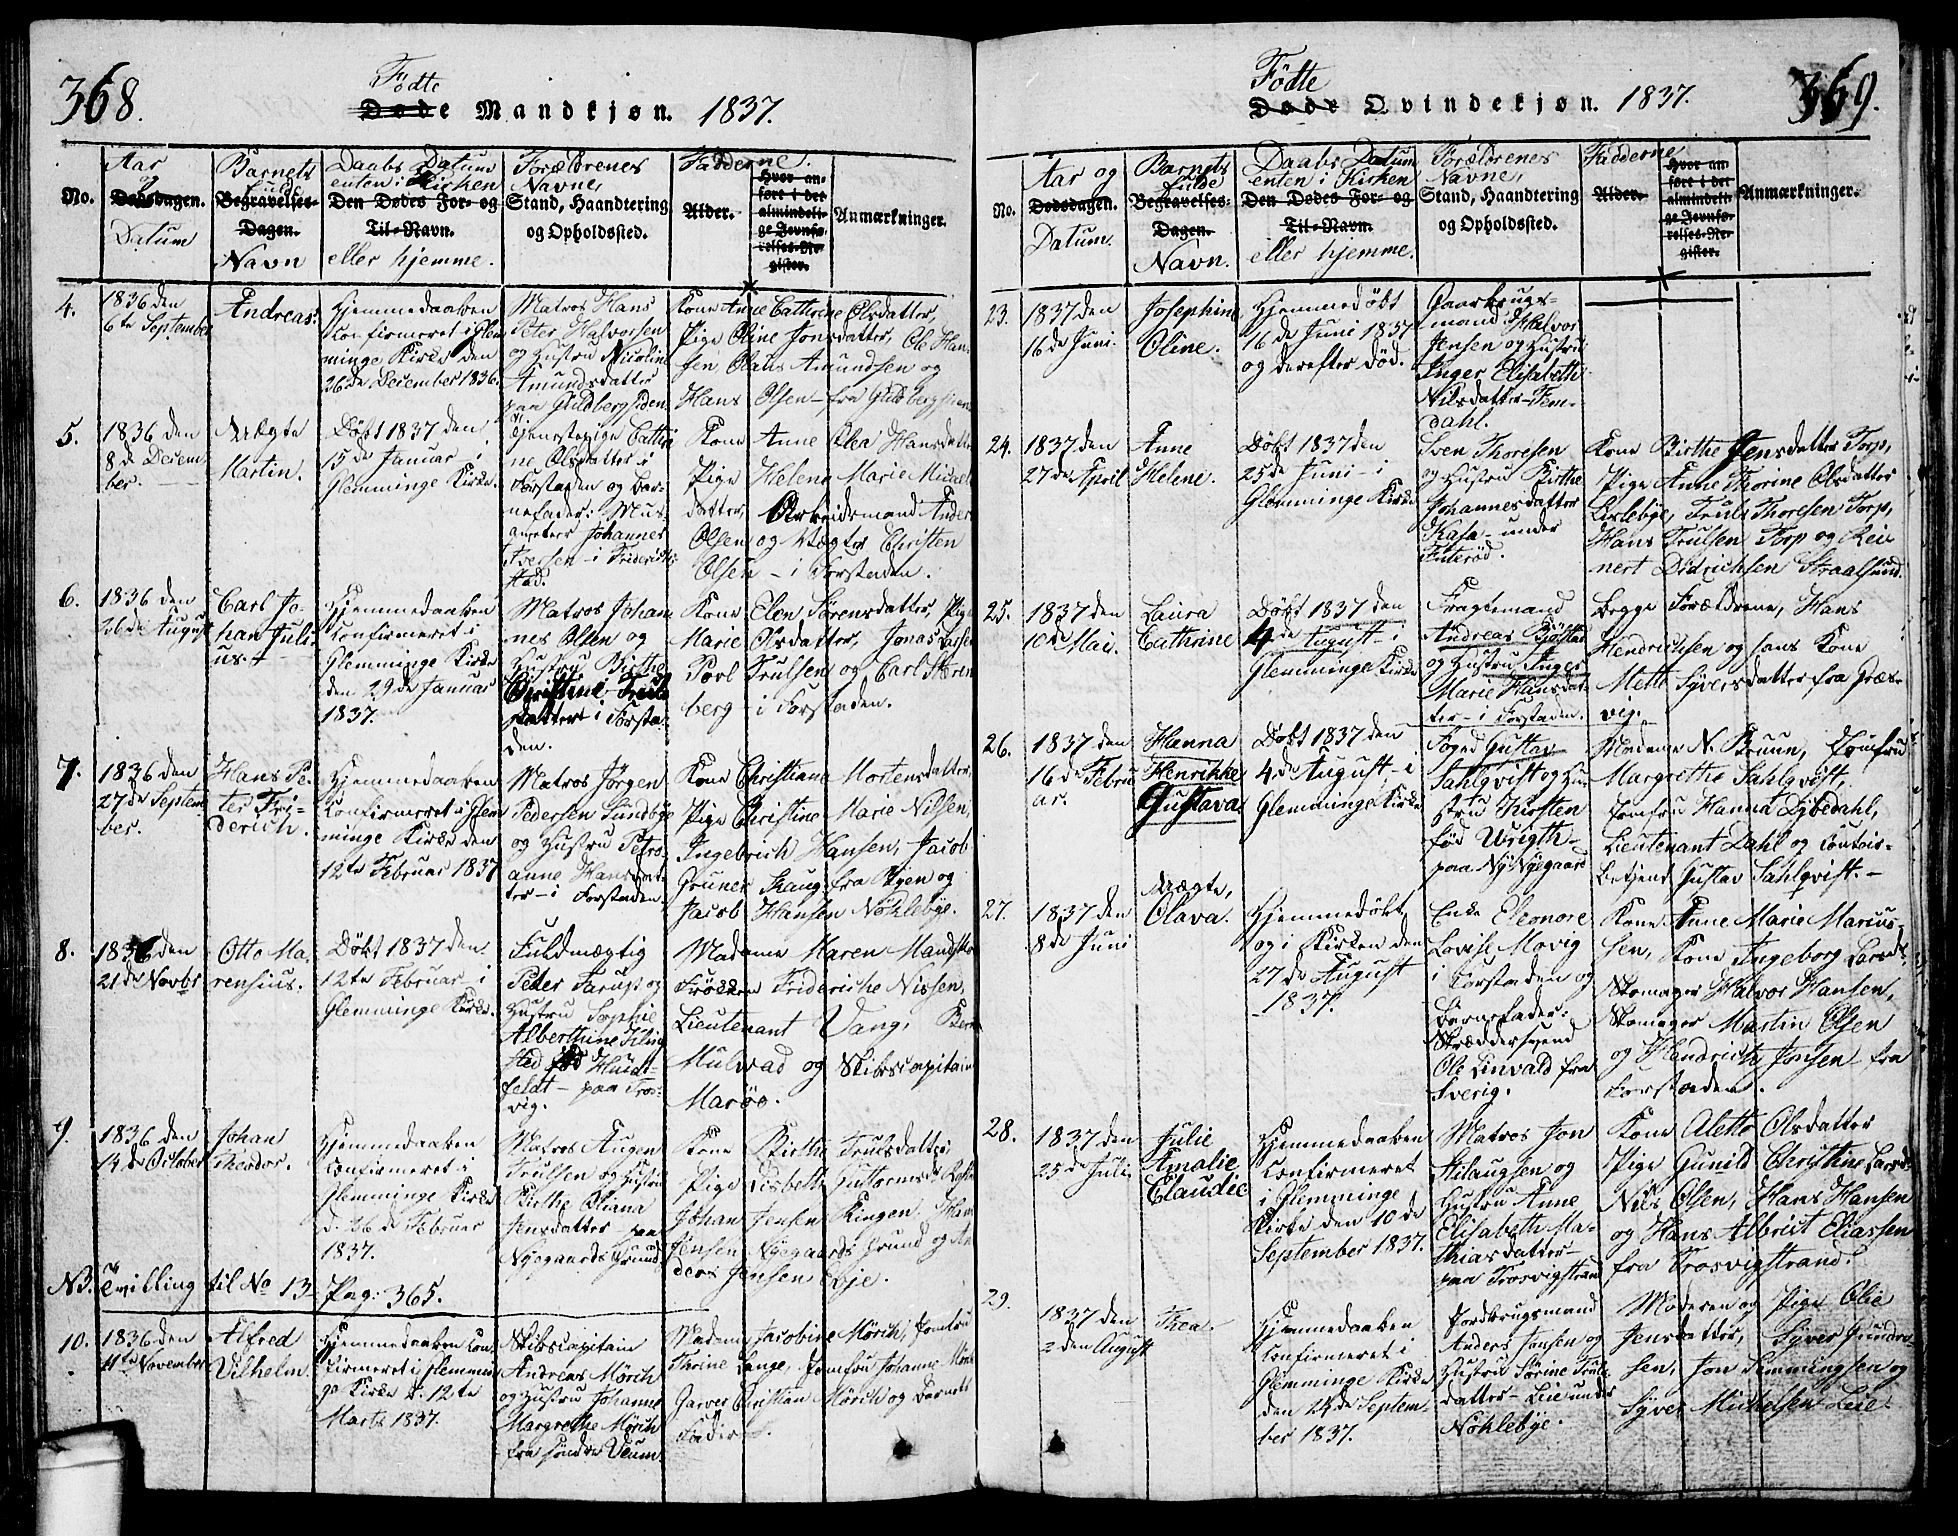 368.
Fødte
Døde Mandkjøn. 1837.
No.
Aar og
Dødsdagen.
Datum
Barnets fulde
Begravelses-
Dagen.
Navn
Daabs Datum
enten i Kirken
Den Dødes For- og
Til-Navn.
eller hjemme.
Forældrenes
Navne,
Stand, Haandtering
og Opholdssted.
Fadderne.
Alder.
Hvor an-
ført i det
almindeli-
ge Jevnfø-
relses-Re-
gister.
Anmærkninger.
4.
1836 den
6te September
Andreas.
Hjemmedaaben
Confirmeret i Glem
minge Kirke den
26de December 1836.
Matros Hans
Peter Halvorsen
og Hustru Nicoline
Amundsdatter
paa Guldbergsiden.
Kone Anne Cathrine Olsdatter,
Pige Oline Jonsdatter, Ole Han
sen, Olaus Amundsen og
Hans Olsen - fra Guldbergsiden
5.
1836 den
8de Decem
ber.
Uægte
Martin.
Døbt 1837 den
15de Januar i
Glemminge Kirke.
Tjenestepige Cathri
ne Olsdatter i
Forstaden og Bar-
nefader: Mus-
queteer Johannes
Iversen - i Friderichs
stad.
Kone Anne Olea Hansdatter
Pige Helena Marie Michels
datter, Arbeidsmand Anders
Olsen og Vægter Christen
Olsen - i Forstaden.
6.
1836 den
26de August
Carl Jo-
han Juli-
us.
Hjemmedaaben
Confirmeret i
Glemminge Kirke
den 29de Januar
1837.
Matros Johan
nes Olsen og
Hustru Birthe
Christine Truls
datter i Forsta-
den.
Kone Elen Sørensdatter, Pige
Marie Olsdatter, Jonas Larsen
Povl Trulsen og Carl Støren
berg - i Forstaden.
7.
1836 den
27de Septem
ber.
Hans Pe-
ter Fri-
derich.
Hjemmedaaben
Confirmeret i Glem
minge Kirke den
12te Februar 1837
Matros Jørgen
Pedersen Sundbye
og Hustru Petro-
anne Hansdat-
ter - i Forstaden.
Kone Christiana Mortensdatter,
Pige Christine Marie Nilsen,
Ingebrich Hansen, Jacob
Gruner Haug fra Byen og
Jacob Hansen Nøhlebye.
8.
1836 den
21de Novbr
Otto Ma-
rensius.
Døbt 1837 den
12te Februar i
Glemminge Kirke.
Fuldmægtig
Peter Farup og
Hustru Sophie
Alberthine Kling
sted fød Huidt-
feldt - paa Tros-
vig.
Madame Maren Mandskov
Frøken Friderikke Nissen,
Lieutenant Vang, Bernt
Mulvad og Skibscapitain
Marøe.
9.
1836 den
14de October
Johan
Theodor.
Hjemmedaaben
Confirmeret i
Glemminge Kirke
d. 26de Februar
1837.
Matros Augen
Trulsen og Hustru
Birthe Oliana
Jensdatter - paa
Nyegaards Grund.
Kone Birthe Trulsdatter
Pige Lisbeth
Johan Jensen Ringen. Hans
Jensen Nyegaards Grund og An
ders Jensen Evje.
NB. Tvilling til No 13 Pag: 365.
10.
1836 den
11te November
Alfred
Vilhelm.
Hjemmedaaben Con
firmeret i Glemmin
ge Kirke d. 12te
Marts 1837.
Skibscapitain
Andreas Mörch
og Hustru Johanne
Margrethe Mörch
fra søndre Veum
Madam Jacobine Mörch, Jomfru
Thrine Lange, Jomfru Johanne Mörch
Garver Christian Mörch og Barnets
Fader.
369.
Fødte
Døde Qvindekjøn. 1837.
No.
Aar og
Dødsdagen.
Datum.
Barnets
fulde
Begravelses-
Dagen.
Navn.
Daabs Datum
enten i Kirken
Den Dødes For- og
Til-Navn.
eller hjemme.
Forældrenes
Navne,
Stand, Haandtering
og Opholdssted.
Fadderne
Alder.
Hvor an-
ført i det
almindeli-
ge Jevnfø-
relses-Re-
gister.
Anmærkninger.
23.
1837 den
16de Juni.
Josephine
Oline.
Hjemmedøbt
16de Juni 1837
og derefter død.
Gaardbrugs-
mand Halvor
Jensen og Hustru
Inger Elisabeth
Nilsdatter - Fem-
dahl.
24.
1837 den
27de April
Anne
Helene.
Døbt 1837 den
25de Juni - i
Glemminge Kirke
Sven Thoresen
og Hustru Birthe
Johannesdatter
Kasa - under
Enterød.
Kone Birthe Jensdatter Torp,
Pige Anne Thorine Olsdatter
Lislebye, Truls Thoresen Torp,
Hans Trulsen Torp og Rei
nert Didrichsen Straalsund.
25.
1837 den
10de Mai.
Laura
Cathrine
Døbt 1837 den
4de August i
Glemminge Kirke
Fragtemand
Andreas Bjølstad
og Hustru Inger
Marie Hansdat-
ter - i Forstaden.
Begge Forældrene, Hans
Hendrichsen og hans Kone
Mette Syversdatter fra Græs-
vig.
26.
1837 den
16de Febru
ar.
Hanna
Henrikke
Gustava
Døbt 1837 den
4de August - i
Glemminge Kirke
Foged Gustav
Sahlqvist og Hu-
stru Kirsten
fød Wrigth -
paa Nye Nyegaard
Madame N. Bruun, Jomfrue
Margrethe Sahlqvist,
Jomfru Hanna Lybedahl,
Lieutenant Dahl og Contoir-
Betjent Gustav Sahlqvist. -
27.
1837 den
8de Juni
Uægte,
Olava.
Hjemmedøbt
og i Kirken den
27de August
1837.
Enke Eleonore
Lovise Movig
i Forstaden og
Barnefader:
Skræddersvend
Ole Linvald fra
Sverig.
Kone Anne Marie Marius-
sen, Kone Ingeborg Larsdr,
Skomager Halvor Hansen,
Skomager Martin Olsen
og Hendrich Jonsen - fra
Forstaden.
28.
1837 den
25de Juli.
Julie
Amalie
Claudie
Hjemmedaaben
Confirmeret
i Glemminge
Kirke den 10de
September 1837.
Matros Jon
Aslaugsen og
Hustru Anne
Elisabeth Ma-
thiasdatter -
paa Trosvigstrand
Kone Alette Olsdatter
Pige Gunild Christine Larsdr
Nils Olsen, Hans Hansen
og Hans Albrict Eliassen
fra Trosvigstrand.
29.
1837 den
2den August
Thea.
Hjemmedaaben
Confirmeret i
Glemminge Kirke
den 24de Septem
ber 1837.
Jordbrugsmand
Anders Jonsen og
Hustru Sørine Truls
datter - Leie under
Nøhlebye.
Moderen og Pige Olie
Jensdatter, Syver Gunder-
sen, Jon Simmingsen og
Syver Michelsen Leie.